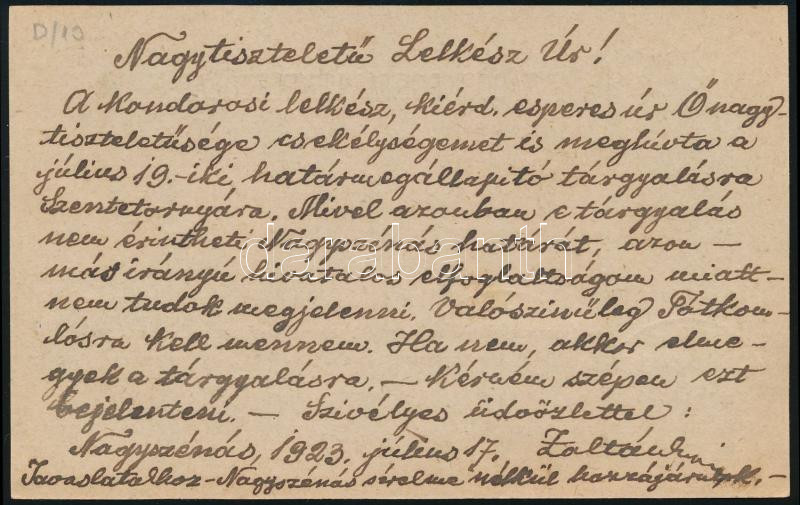 D/10
Nagytiszteletű Lelkész Úr!
A kondorosi lelkész, kiérd. esperes úr Őnagy-
tiszteletűsége csekélységemet is meghívta a
július 19.-iki, határmegállapító tárgyalásra
Szentetornyára. Mivel azonban e tárgyalás
nem érintheti Nagyszénás határát, azon -
más irányú hivatalos elfoglaltságom miatt -
nem tudok megjelenni. Valószinűleg Tótkom-
lósra kell mennem. Ha nem, akkor elme-
gyek a tárgyalásra. - Kérném szépen ezt
bejelenteni. - Szivélyes üdvözlettel:
Nagyszénás, 1923. július 17.
Javaslatához - Nagyszénás sérelme nélkül hozzájárulok. -
darabanth